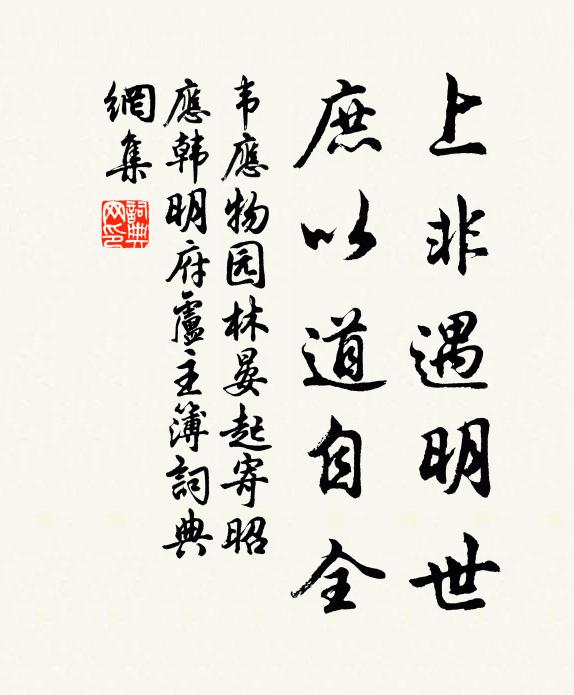 上非遇明世
庶以道自全
韦應物园林晏起寄昭
應韩明府盧主簿詞典
網集
詞典网印